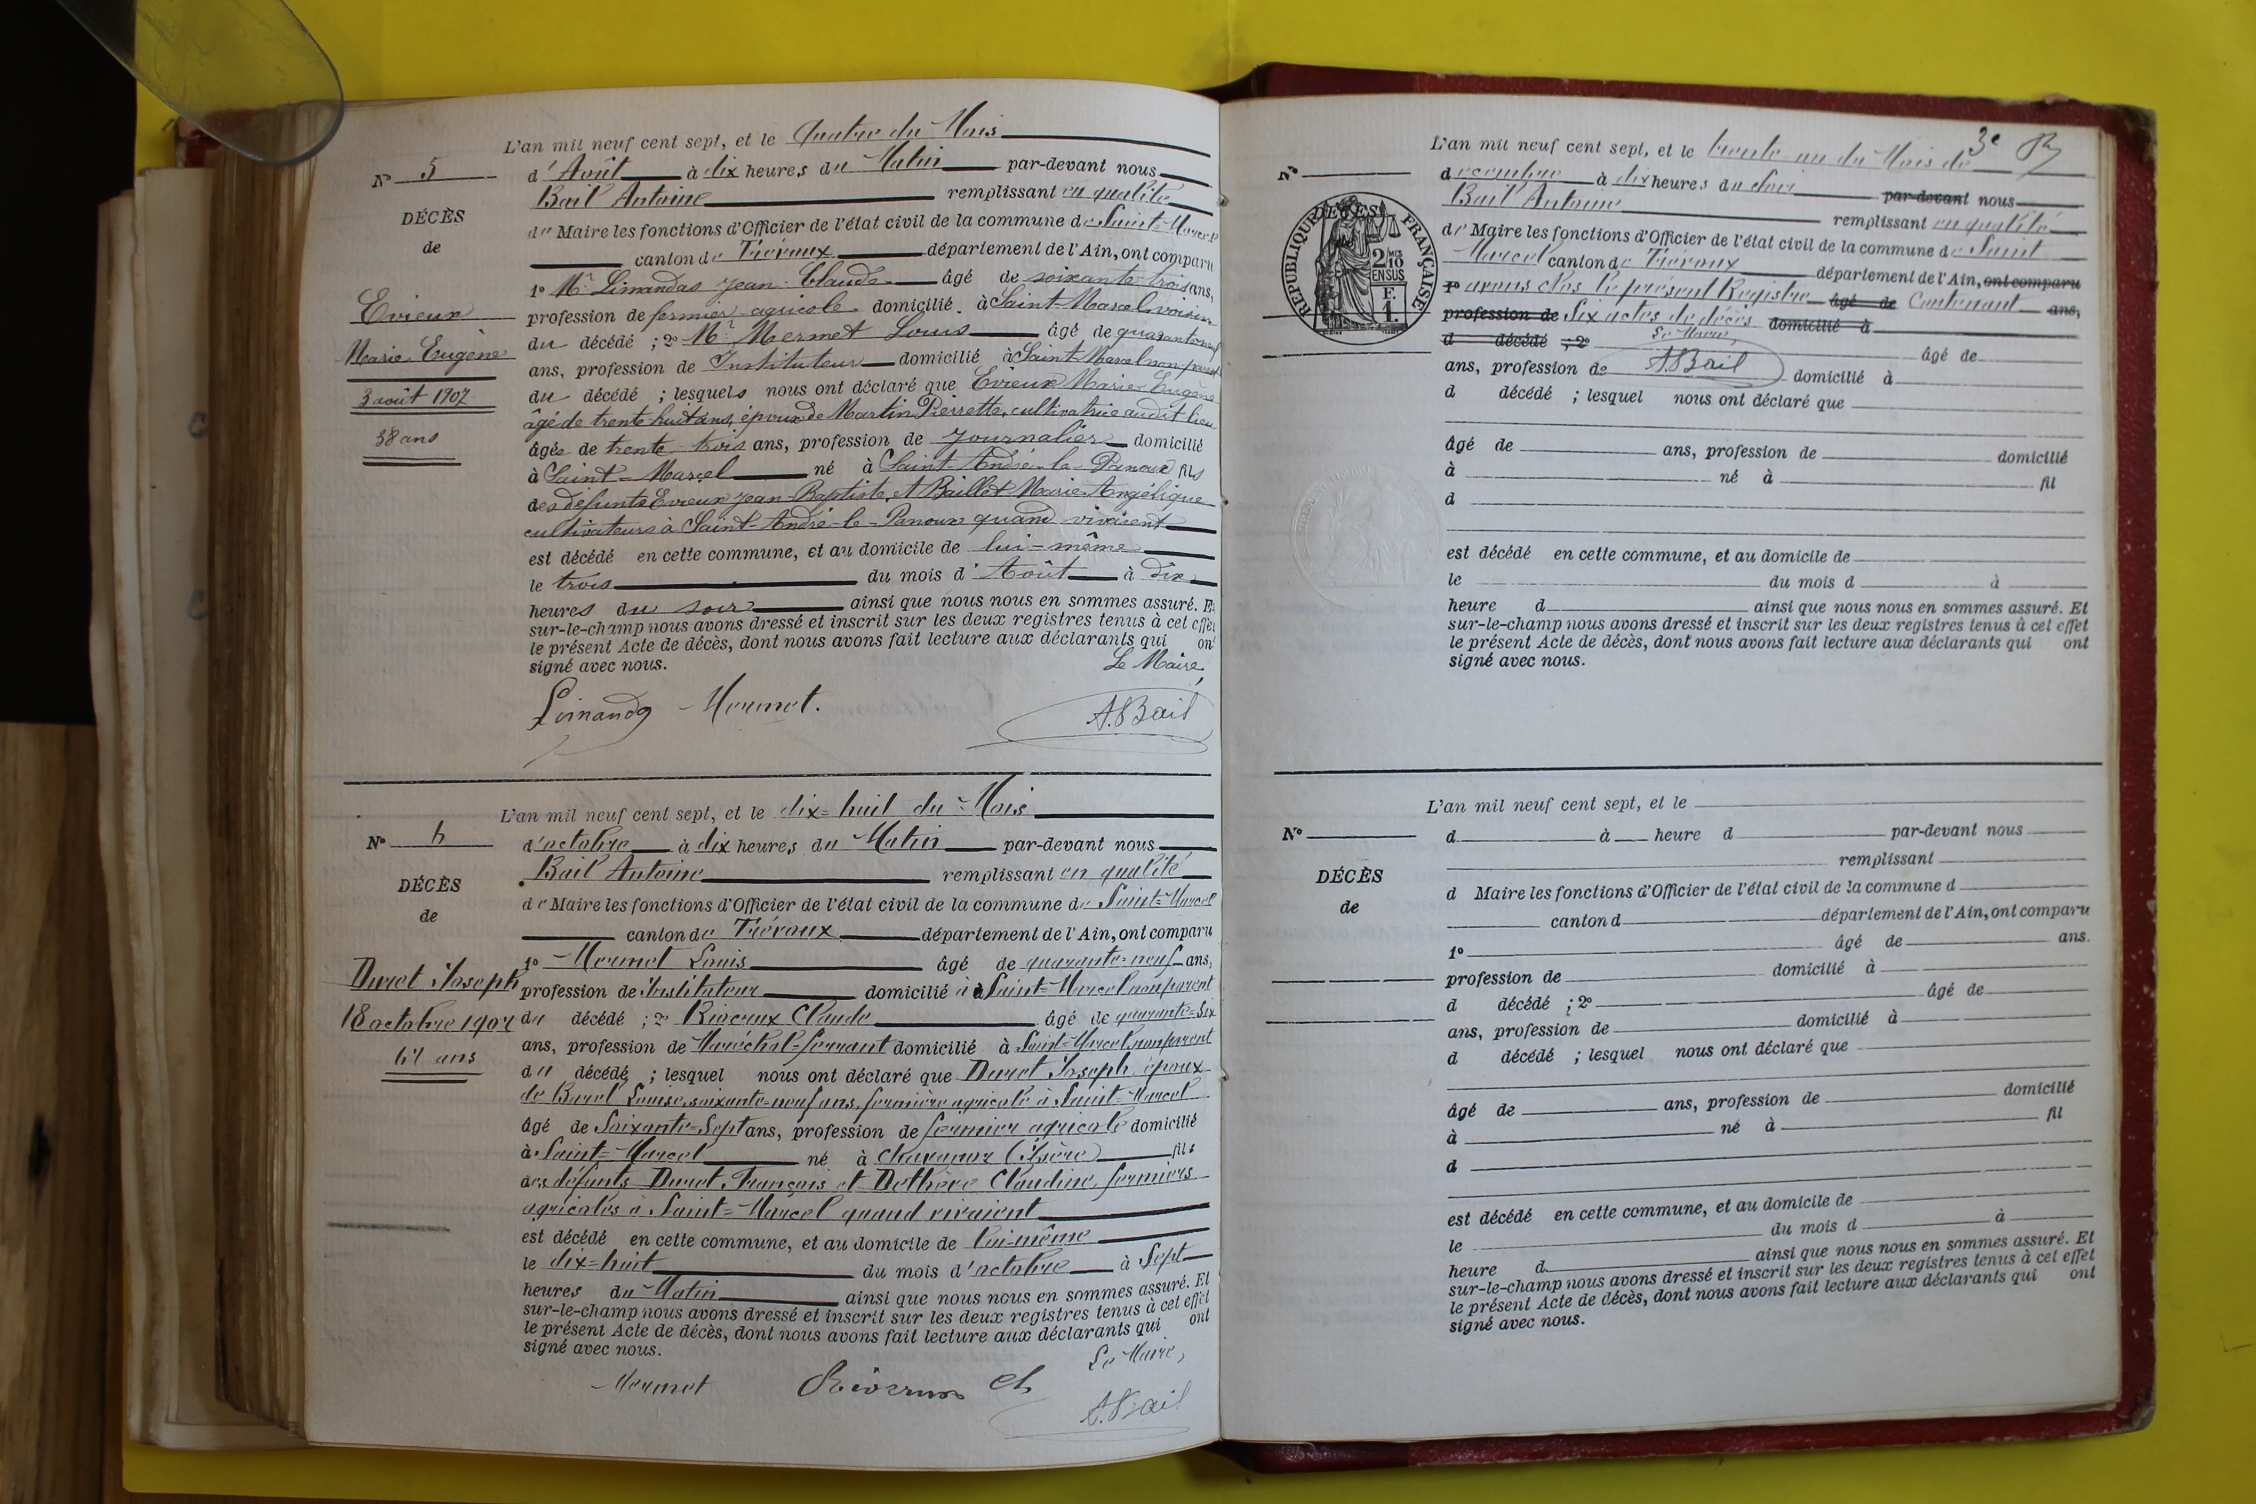 L'an mil neuf cent sept, et le quatre du Mois
N° 5
d'Août à dix heures du Matin par-devant nous
Bail Antoine remplissant en qualité
DÉCÈS
de Maire les fonctions d'Officier de l'état civil de la commune de Saint-Marcel
de
canton de Trévoux département de l'Ain, ont comparu
1° Mr Limandas Jean Claude âgé de soixante-trois ans,
Evieux
profession de fermier agricole domicilié à Saint-Marcel voisin
du décédé ; 2° Mr Mermet Louis âgé de quarante-neuf
Marie Eugène
ans, profession de Instituteur domicilié à Saint Marcel non parent
3 août 1907
du décédé ; lesquels nous ont déclaré que Evieux Marie Eugène
âgé de trente huit ans, époux de Martin Pierrette, cultivatrice audit lieu
38 ans
âgée de trente-trois ans, profession de Journalier domicilié
à Saint-Marcel né à Saint-André-le-Panoux fils
des défunts Evieux Jean-Baptiste, et Baillet Marie-Angélique
cultivateurs à Saint-André-le-Panoux quand vivaient
est décédé en cette commune, et au domicile de lui-même
le trois du mois d'Août à dix
heures du soir ainsi que nous nous en sommes assuré. Et
sur-le-champ nous avons dressé et inscrit sur les deux registres tenus à cet effet
le présent Acte de décès, dont nous avons fait lecture aux déclarants qui ont
signé avec nous.
Le Maire,
Limandas Mermet. A. Bail
L'an mil neuf cent sept, et le dix-huit du Mois
N° 6
d'octobre à dix heures du Matin par-devant nous
Bail Antoine remplissant en qualité
DÉCÈS
de Maire les fonctions d'Officier de l'état civil de la commune de Saint-Marcel
de
canton de Trévoux département de l'Ain, ont comparu
1° Mermet Louis âgé de quarante-neuf ans,
Duret Joseph
profession de Instituteur domicilié à à Saint-Marcel non parent
18 octobre 1907
du décédé ; 2° Rivoeux Claude âgé de quarante-six
ans, profession de Maréchal-ferrant domicilié à Saint-Marcel non parent
67 ans
du décédé ; lesquel nous ont déclaré que Duret Joseph époux
de Burel Louise soixante-neuf ans, fermière agricole à Saint-Marcel
âgé de Soixante-Sept ans, profession de fermier agricole domicilié
à Saint-Marcel né à Chavanoz (Isère) fils
des défunts Duret François et Dethève Claudine, fermiers
agricoles à Saint-Marcel quand vivaient
est décédé en cette commune, et au domicile de lui-même
le dix-huit du mois d'octobre à Sept
heures du Matin ainsi que nous nous en sommes assuré. Et
sur-le-champ nous avons dressé et inscrit sur les deux registres tenus à cet effet
le présent Acte de décès, dont nous avons fait lecture aux déclarants qui ont
signé avec nous.
Le Maire,
Mermet A. Bail
3e
L'an mil neuf cent sept, et le trente-un du Mois de
N°
decembre à dix heures du Soir par-devant nous
Bail Antoine remplissant en qualité
DÉCÈS
RÉPUBLIQUE FRANÇAISE
2/10 EN SUS
F. 1.
de Maire les fonctions d'Officier de l'état civil de la commune de Saint
Marcel canton de Trévoux département de l'Ain, ont comparu
1° avons clos le présent Registre âgé de Contenant ans,
profession de Six actes de décès domicilié à
d décédé ; 2° Le Maire,
âgé de
ans, profession de A. Bail domicilié à
d décédé ; lesquel nous ont déclaré que
âgé de ans, profession de domicilié
à né à fil
d
est décédé en cette commune, et au domicile de
le du mois d à
heure d ainsi que nous nous en sommes assuré. Et
sur-le-champ nous avons dressé et inscrit sur les deux registres tenus à cet effet
le présent Acte de décès, dont nous avons fait lecture aux déclarants qui ont
signé avec nous.
L'an mil neuf cent sept, et le
N°
d à heure d par-devant nous
remplissant
DÉCÈS
d Maire les fonctions d'Officier de l'état civil de la commune d
de
canton d département de l'Ain, ont comparu
1° âgé de ans.
profession de domicilié à
d décédé ; 2° âgé de
ans, profession de domicilié à
d décédé ; lesquel nous ont déclaré que
âgé de ans, profession de domicilié
à né à fil
d
est décédé en cette commune, et au domicile de
le du mois d à
heure d ainsi que nous nous en sommes assuré. Et
sur-le-champ nous avons dressé et inscrit sur les deux registres tenus à cet effet
le présent Acte de décès, dont nous avons fait lecture aux déclarants qui ont
signé avec nous.